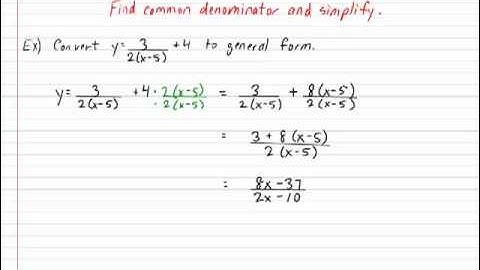 Find common denominator and simplify.
Ex) Convert y = 3/2(x-5) + 4 to general form.
y = 3/2(x-5) + 4 · 2(x-5)/2(x-5) = 3/2(x-5) + 8(x-5)/2(x-5)
= 3 + 8(x-5)/2(x-5)
= 8x-37/2x-10